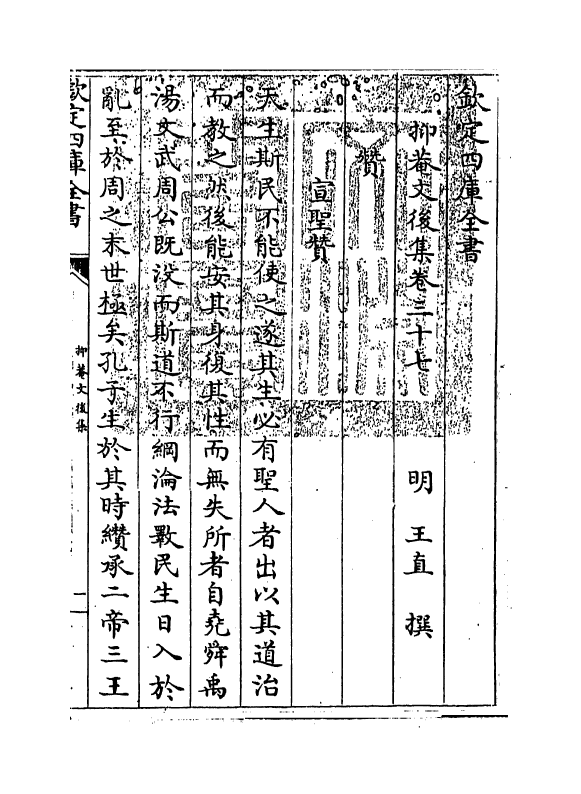 欽定四庫全書
抑菴文後集卷三十七
明 王直 撰
贊
宣聖贊
天生斯民不能使之遂其生必有聖人者出以其道治
而教之然後能安其身復其性而無失所者自堯舜禹
湯文武周公既没而斯道不行綱淪法斁民生日入於
亂至於周之末世極矣孔子生於其時纘承二帝三王
欽定四庫全書
抑菴文後集